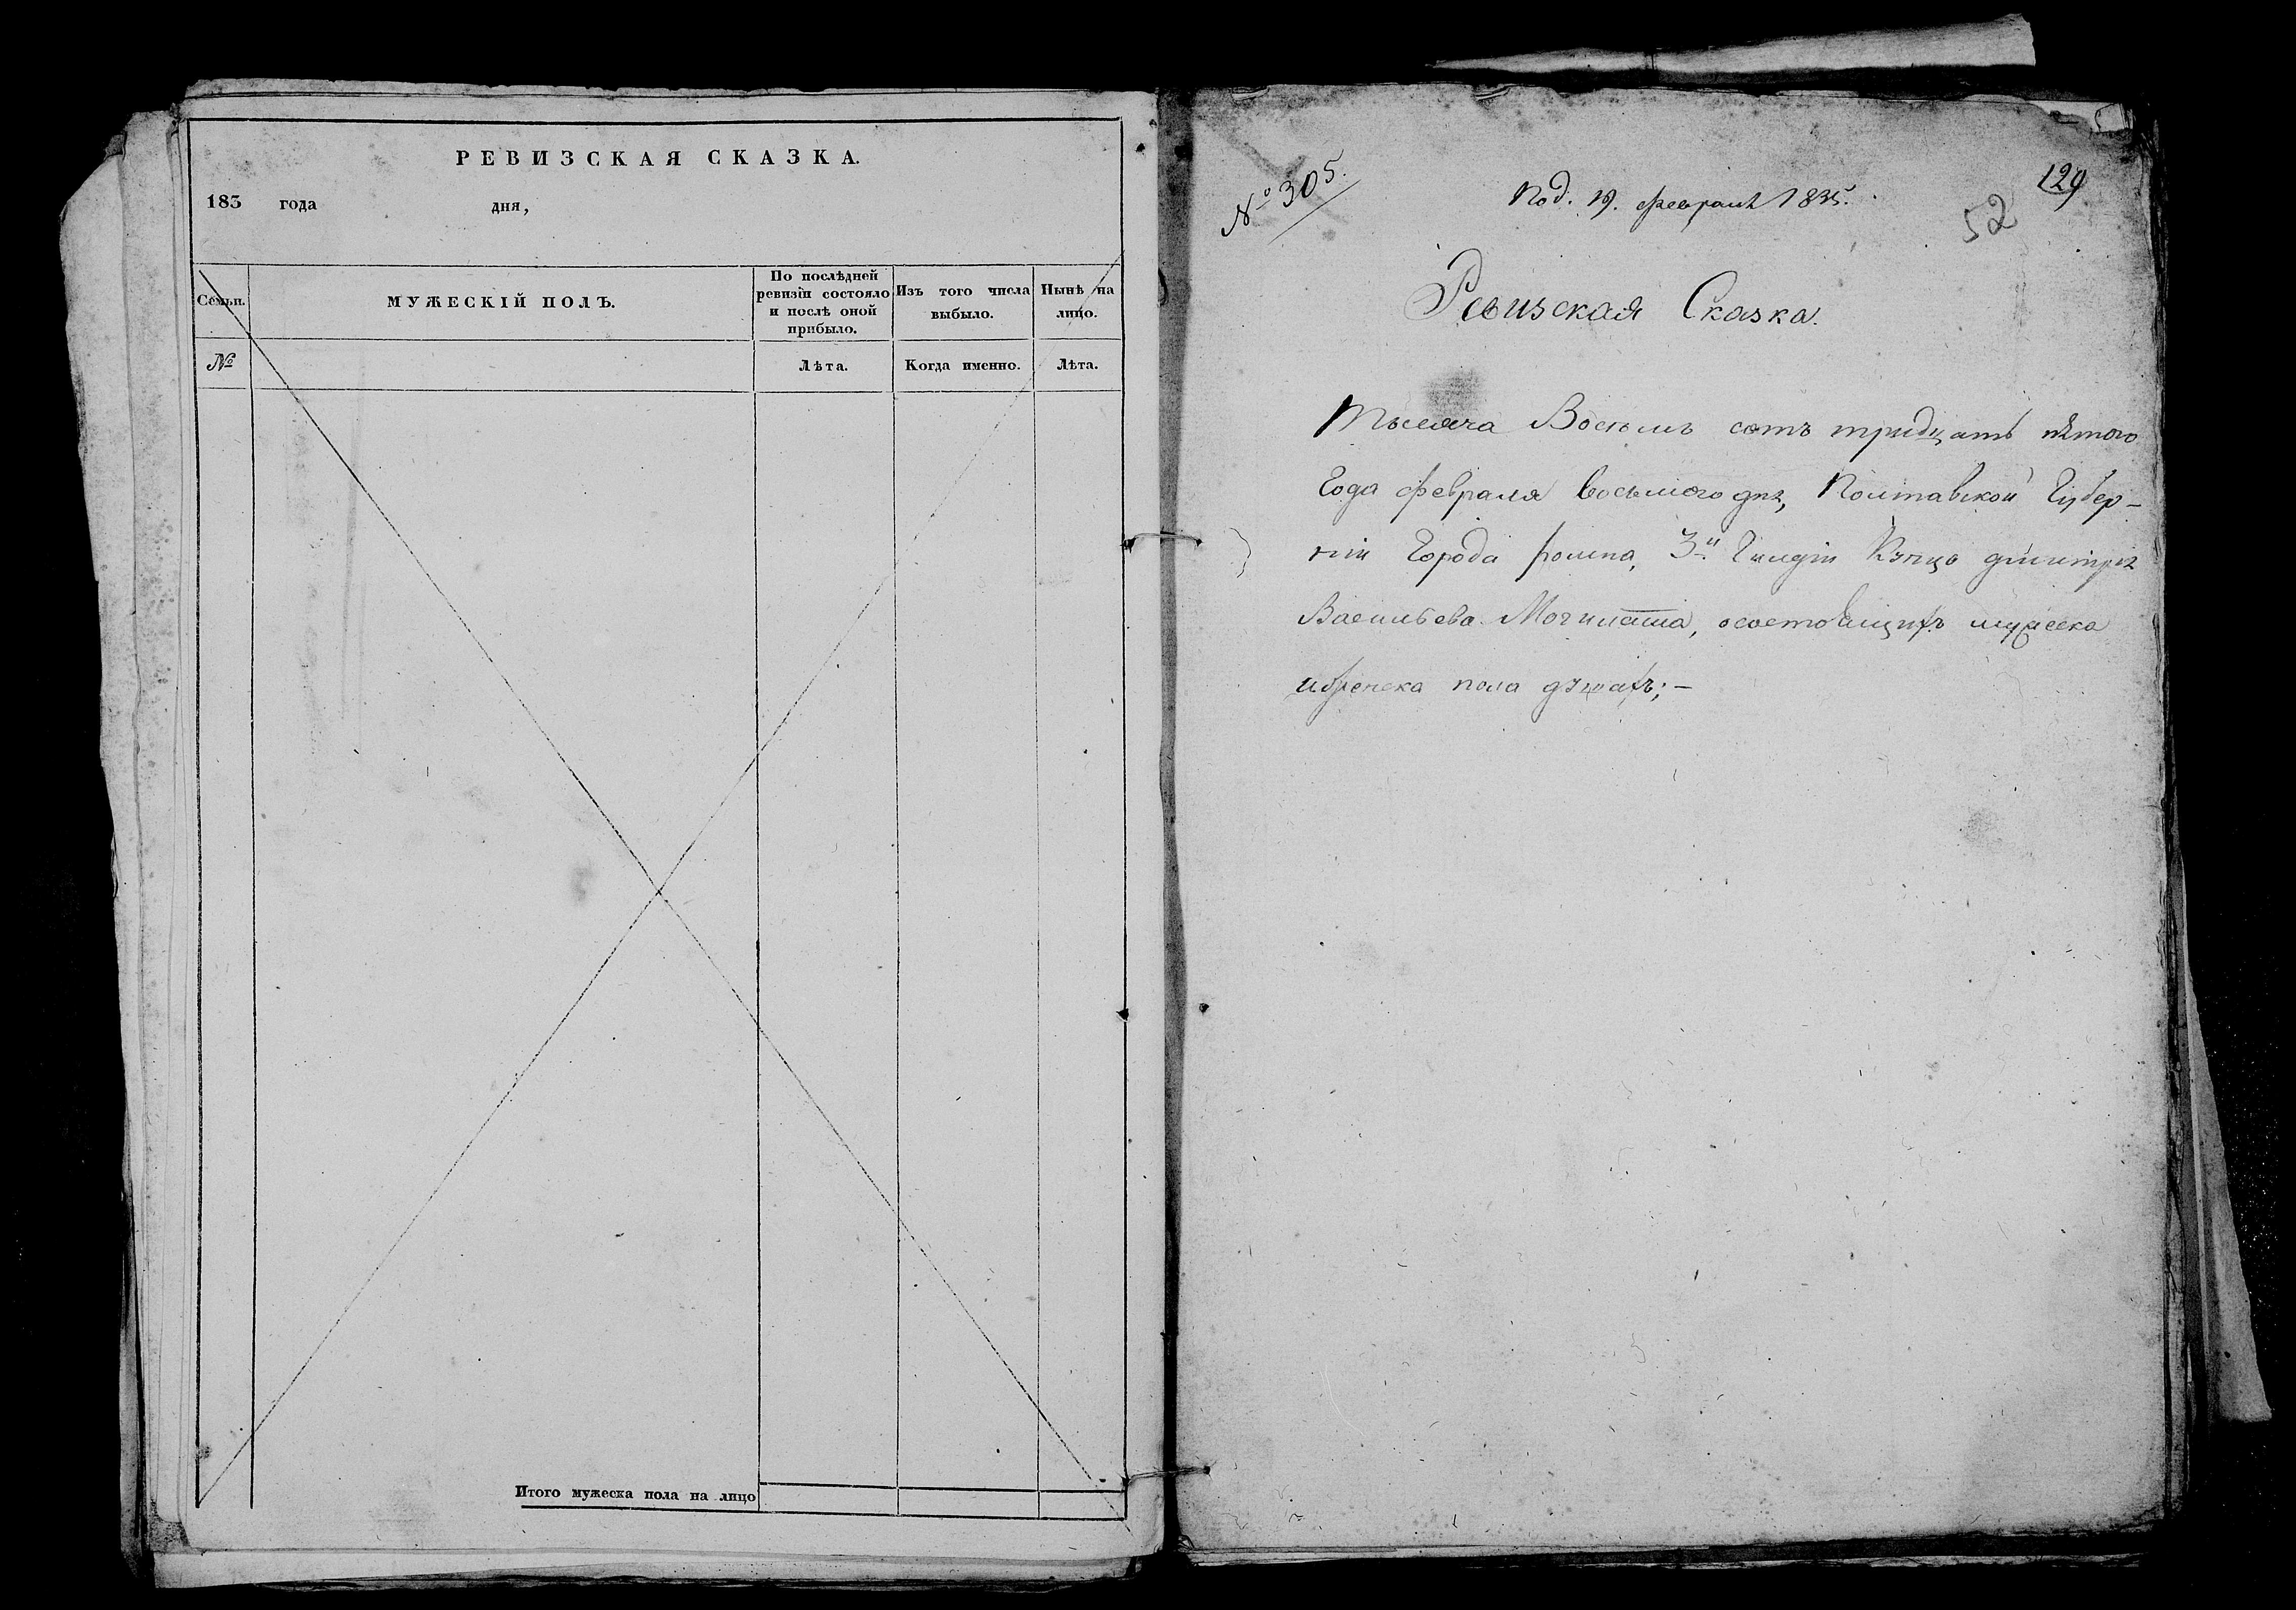 РЕВИЗСКАЯ СКАЗКА.
183 года дня,
Семьи.
МУЖЕСКІЙ ПОЛЪ.
По послѣдней
ревизіи состояло
и послѣ оной
прибыло.
Изъ того числа
выбыло.
Нынѣ на
лицо.
№
Лѣта.
Когда именно.
Лѣта.
Итого мужеска пола на лицо
№ 305.
Под. 19. февраля 1835.
129
52
Ревизская Сказка.
Тысяча Восемь сотъ тридцать пятого
Года февраля восьмого дня, Полтавской Губер-
ніи Города ромна, 3й Гилдіи Купца дмитрія
Васильева, осостоящихъ мужеска
иженска пола душахъ; —